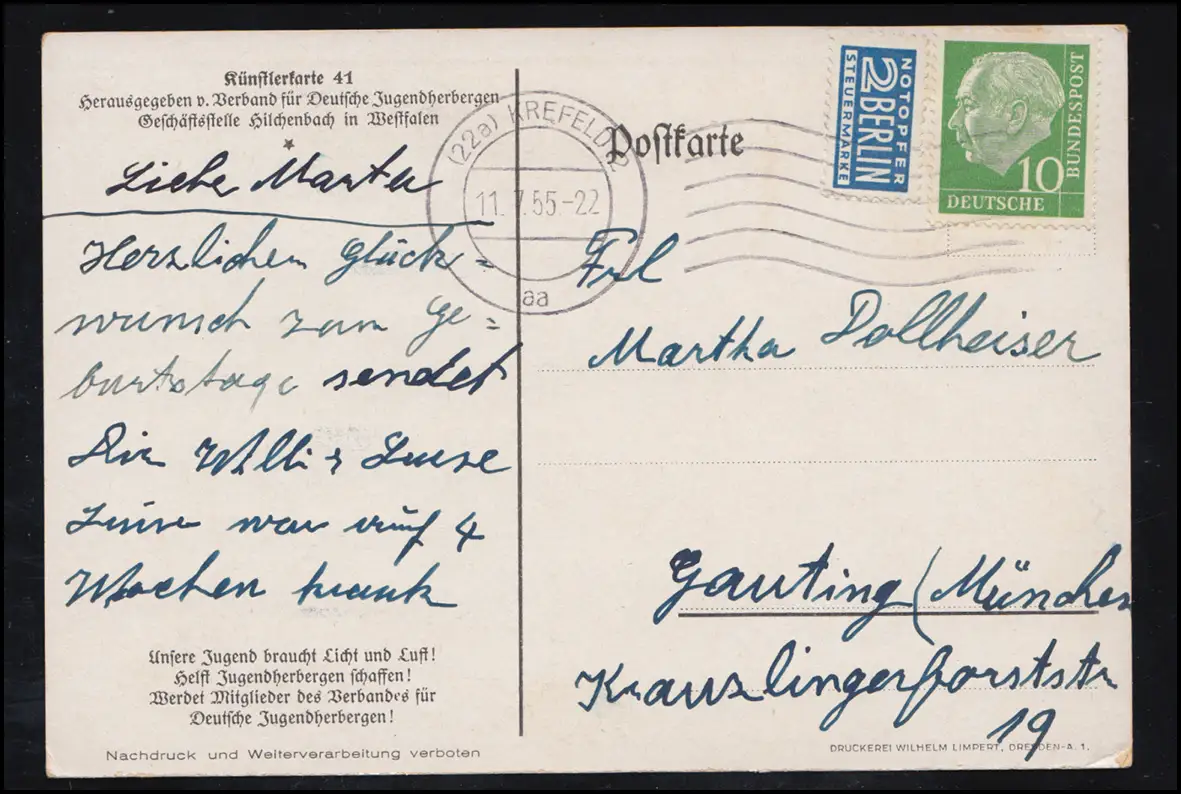 Künstlerkarte 41
Herausgegeben v. Verband für Deutsche Jugendherbergen
Geschäftsstelle Hilchenbach in Westfalen
Liebe Marta
Herzlichen Glück=
wunsch zum Ge=
burtstage sendet
Dir Willi
Luise war auf 4
Wochen krank
Unsere Jugend braucht Licht und Luft!
Helft Jugendherbergen schaffen!
Werdet Mitglieder des Verbandes für
Deutsche Jugendherbergen!
Nachdruck und Weiterverarbeitung verboten
(22a) KREFELD
11.7.55.-22
aa
Postkarte
NOTOPFER
2 BERLIN
STEUERMARKE
10
DEUTSCHE
BUNDESPOST
Frl
Martha Dollheiser
Gauting (München
Krauzlingerforststr
19
DRUCKEREI WILHELM LIMPERT, DRESDEN-A. 1.